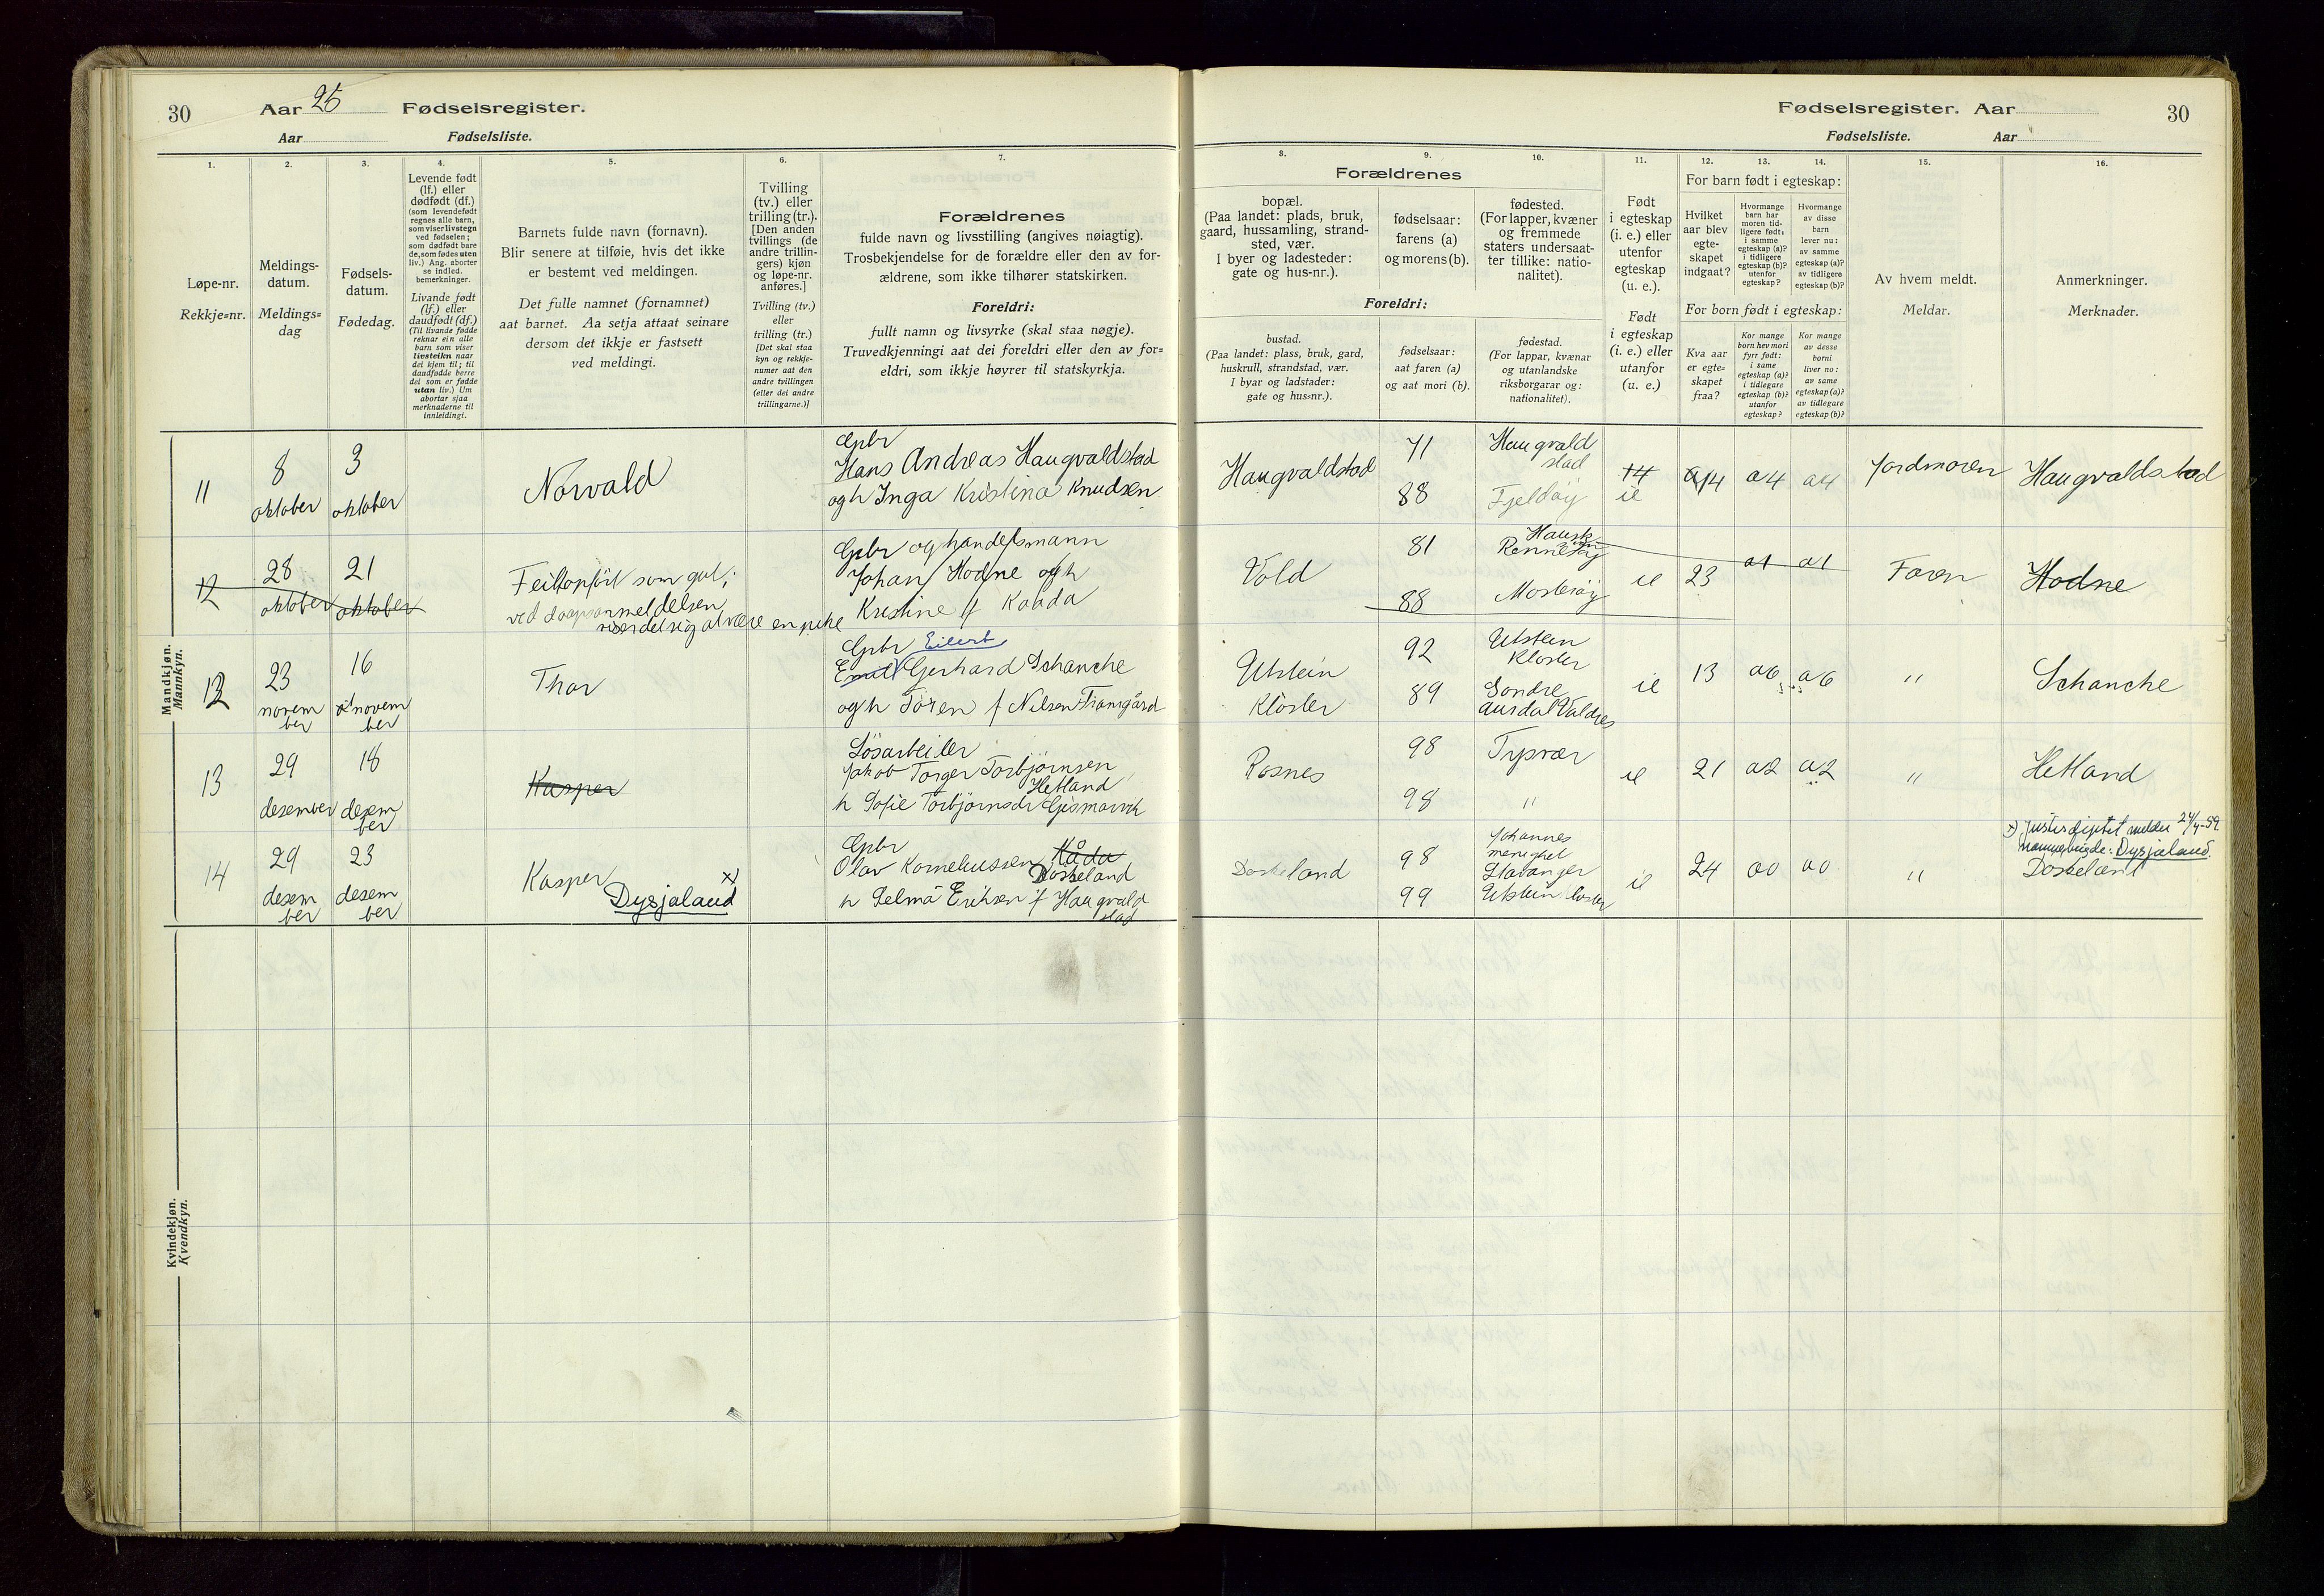 30 Aar 25 Fødselsregister.
Aar Fødselsliste.
Fødselsregister. Aar 30
Fødselsliste. Aar
1. 2. 3. 4. 5. 6. 7.
Løpe-nr.
Rekkje-nr.
Meldings-
datum.
Meldings-
dag
Fødsels-
datum.
Fødedag.
Levende født
(lf.) eller
dødfødt (df.)
(som levendefødt
regnes alle barn,
som viser livstegn
ved fødselen;
som dødfødt bare
de, som fødes uten
liv.) Ang. aborter
se indled.
bemerkninger.
Livande født
(lf.) eller
daudfødt (df.)
(Til livande fødde
reknar ein alle
barn som viser
livsteikn naar
dei kjem til; til
daudfødde berre
dei som er fødde
utan liv.) Um
abortar sjaa
merknaderne til
innleidingi.
Barnets fulde navn (fornavn).
Blir senere at tilføie, hvis det ikke
er bestemt ved meldingen.
Det fulle namnet (fornamnet)
aat barnet. Aa setja attaat seinare
dersom det ikkje er fastsett
ved meldingi.
Tvilling
(tv.) eller
trilling (tr.).
[Den anden
tvillings (de
andre trillin-
gers) kjøn
og løpe-nr.
anføres.]
Tvilling (tv.)
eller
trilling (tr.)
[Det skal staa
kyn og rekkje-
numer aat den
andre tvillingen
(eller dei andre
trillingarne.)]
Forældrenes
fulde navn og livsstilling (angives nøiagtig).
Trosbekjendelse for de forældre eller den av for-
ældrene, som ikke tilhører statskirken.
Foreldri:
fullt namn og livsyrke (skal staa nøgje).
Truvedkjenningi aat dei foreldri eller den av for-
eldri, som ikkje høyrer til statskyrkja.
8. 9. 10. 11. 12. 13. 14. 15. 16.
Forældrenes
bopæl.
(Paa landet: plads, bruk,
gaard, hussamling, strand-
sted, vær.
I byer og ladesteder:
gate og hus-nr.).
fødselsaar:
farens (a)
og morens (b).
fødested.
(For lapper, kvæner
og fremmede
staters undersaat-
ter tillike: natio-
nalitet).
Foreldri:
bustad.
(Paa landet: plass, bruk, gard,
huskrull, strandstad, vær.
I byar og ladstader:
gate og hus-nr.).
fødselsaar:
aat faren (a)
og aat mori (b).
fødestad.
(For lappar, kvænar
og utanlandske
riksborgarar og:
nationalitet).
Født
i egteskap
(i. e.) eller
utenfor
egteskap
(u. e.).
Født
i egteskap
(i. e.) eller
utanfor
(u. e.)
For barn født i egteskap:
Hvilket
aar blev
egte-
skapet
indgaat?
Hvormange
barn har
moren tid-
ligere født:
i samme
egteskap (a)?
i tidligere
egteskap (b)?
utenfor
egteskap?
Hvormange
av disse
barn
lever nu:
av samme
egteskap (a)?
av tidligere
egteskap (b)?
For born født i egteskap:
Kva aar
er egte-
skapet
fraa?
Kor mange
born hev mori
fyrr født:
i same
egteskap (a)?
i tidlegare
egteskap (b)?
utanfor
egteskap?
Kor mange
av desse
borni
liver no:
av same
egteskap (a)?
av tidlegare
egteskap (b)?
Av hvem meldt.
Meldar.
Anmerkninger.
Merknader.
Mandkjøn.
Mannkyn.
11
8
oktober
3
oktober
Norvald
Gpbr
Hans Andreas Haugvaldstad
og h Inga Kristina Knudsen
Haugvaldstad
71
88
Haugvald
stad
Fjeldøy
14
ie
14 a4 a4
Jordmoren
Haugvaldstad
12
28
oktober
21
oktober
Feilopført som gut;
ved daapsanmeldelsen
viser det sig at være en pike
Gpbr og handelsmann
Johan Hodne og h
Kristine f Kaada
Vold
81
88
Hausk
Rennesøy
Mosterøy
ie 23 a1 a1
Faren
Hodne
12
23
novem
ber
16
novem
ber
Thor
Gpbr Eilert
Emil Gerhard Schanche
og h Toren f Nilsen Framgård
Utstein
Kloster
92
89
Utstein
Kloster
Søndre
Aurdal Valdres
ie 13 a6 a6
"
Schanche
13
29
desember
18
desem
ber
Kasper
Løsarbeider
Jakob Torger Torbjørnsen
Hetland
h Sofie Torbjørnsdr Gismarvik
Rosnes
98
98
Tysvær
"
ie 21 a2 a2
"
Hetland
14
29
desem
ber
23
desem
ber
Kasper
Dysjaland x)
Gpbr
Olav Korneliussen Kåda
Doskeland
h Selma Eriksen f Haugvald
stad
Doskeland
98
99
Johannes
menighet
Stavanger
Utstein kloster
ie 24 a0 a0
"
x) Justisdeptet melder 24/4-59
navnebrigde: Dysjaland.
Doskeland
Kvindekjøn.
Kvendkyn.